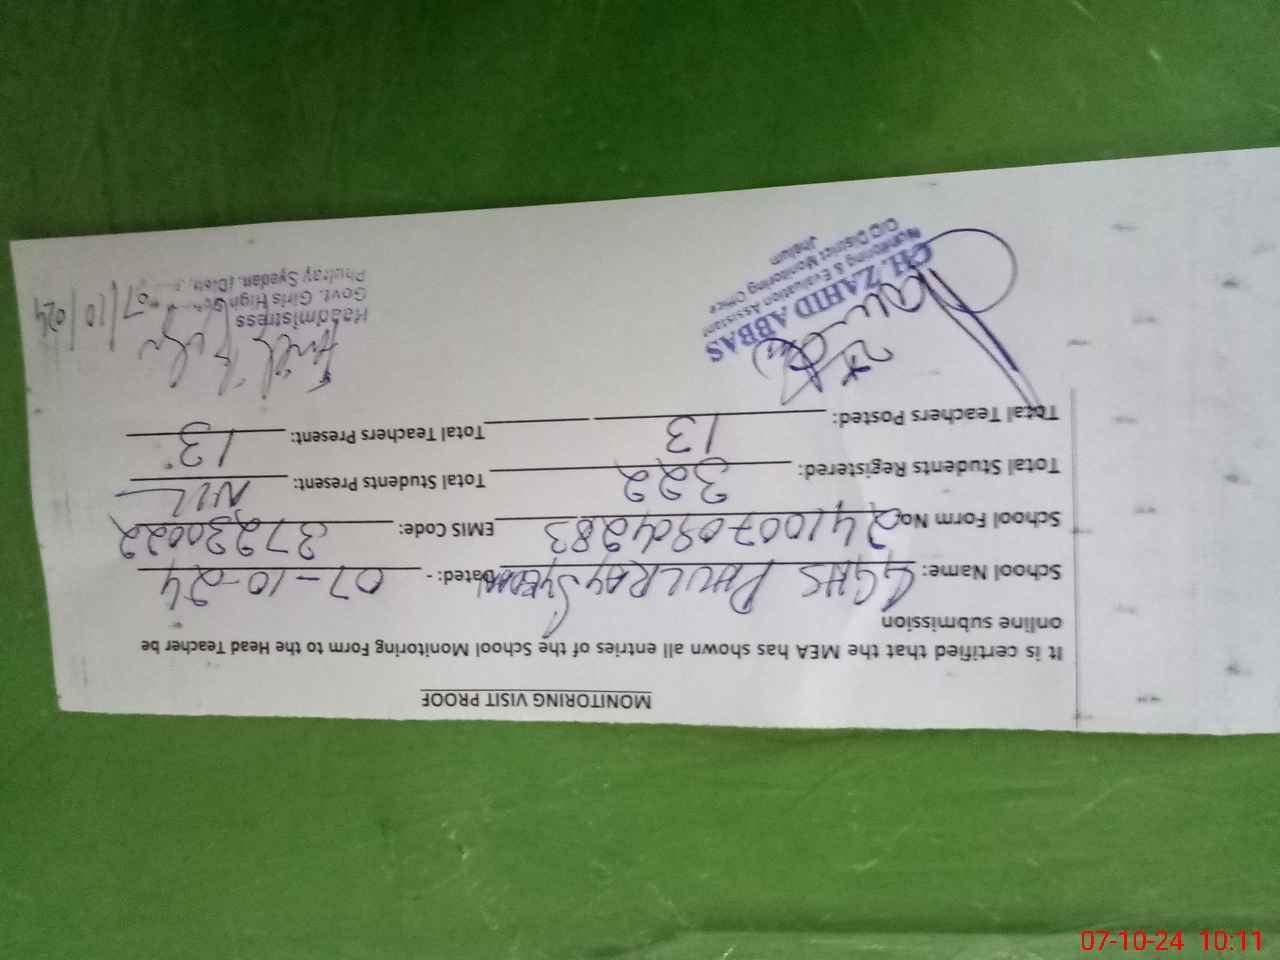 MONITORING VISIT PROOF
It is certified that the MEA has shown all entries of the School Monitoring Form to the Head Teacher be
online submission
School Name: GGHS PHULRAY SYEDAN Dated: - 07-10-24
School Form No 24100709d4283 EMIS Code: 37230022
Total Students Registered: 322 Total Students Present: NIL
Total Teachers Posted: 13 Total Teachers Present: 13
CH. ZAHID ABBAS
Monitoring & Evaluation Assistant
O/O District Monitoring Office
Jhelum
Headmistress
Govt. Girls High
Phulray Syedan,
07/10/024
07-10-24 10:11